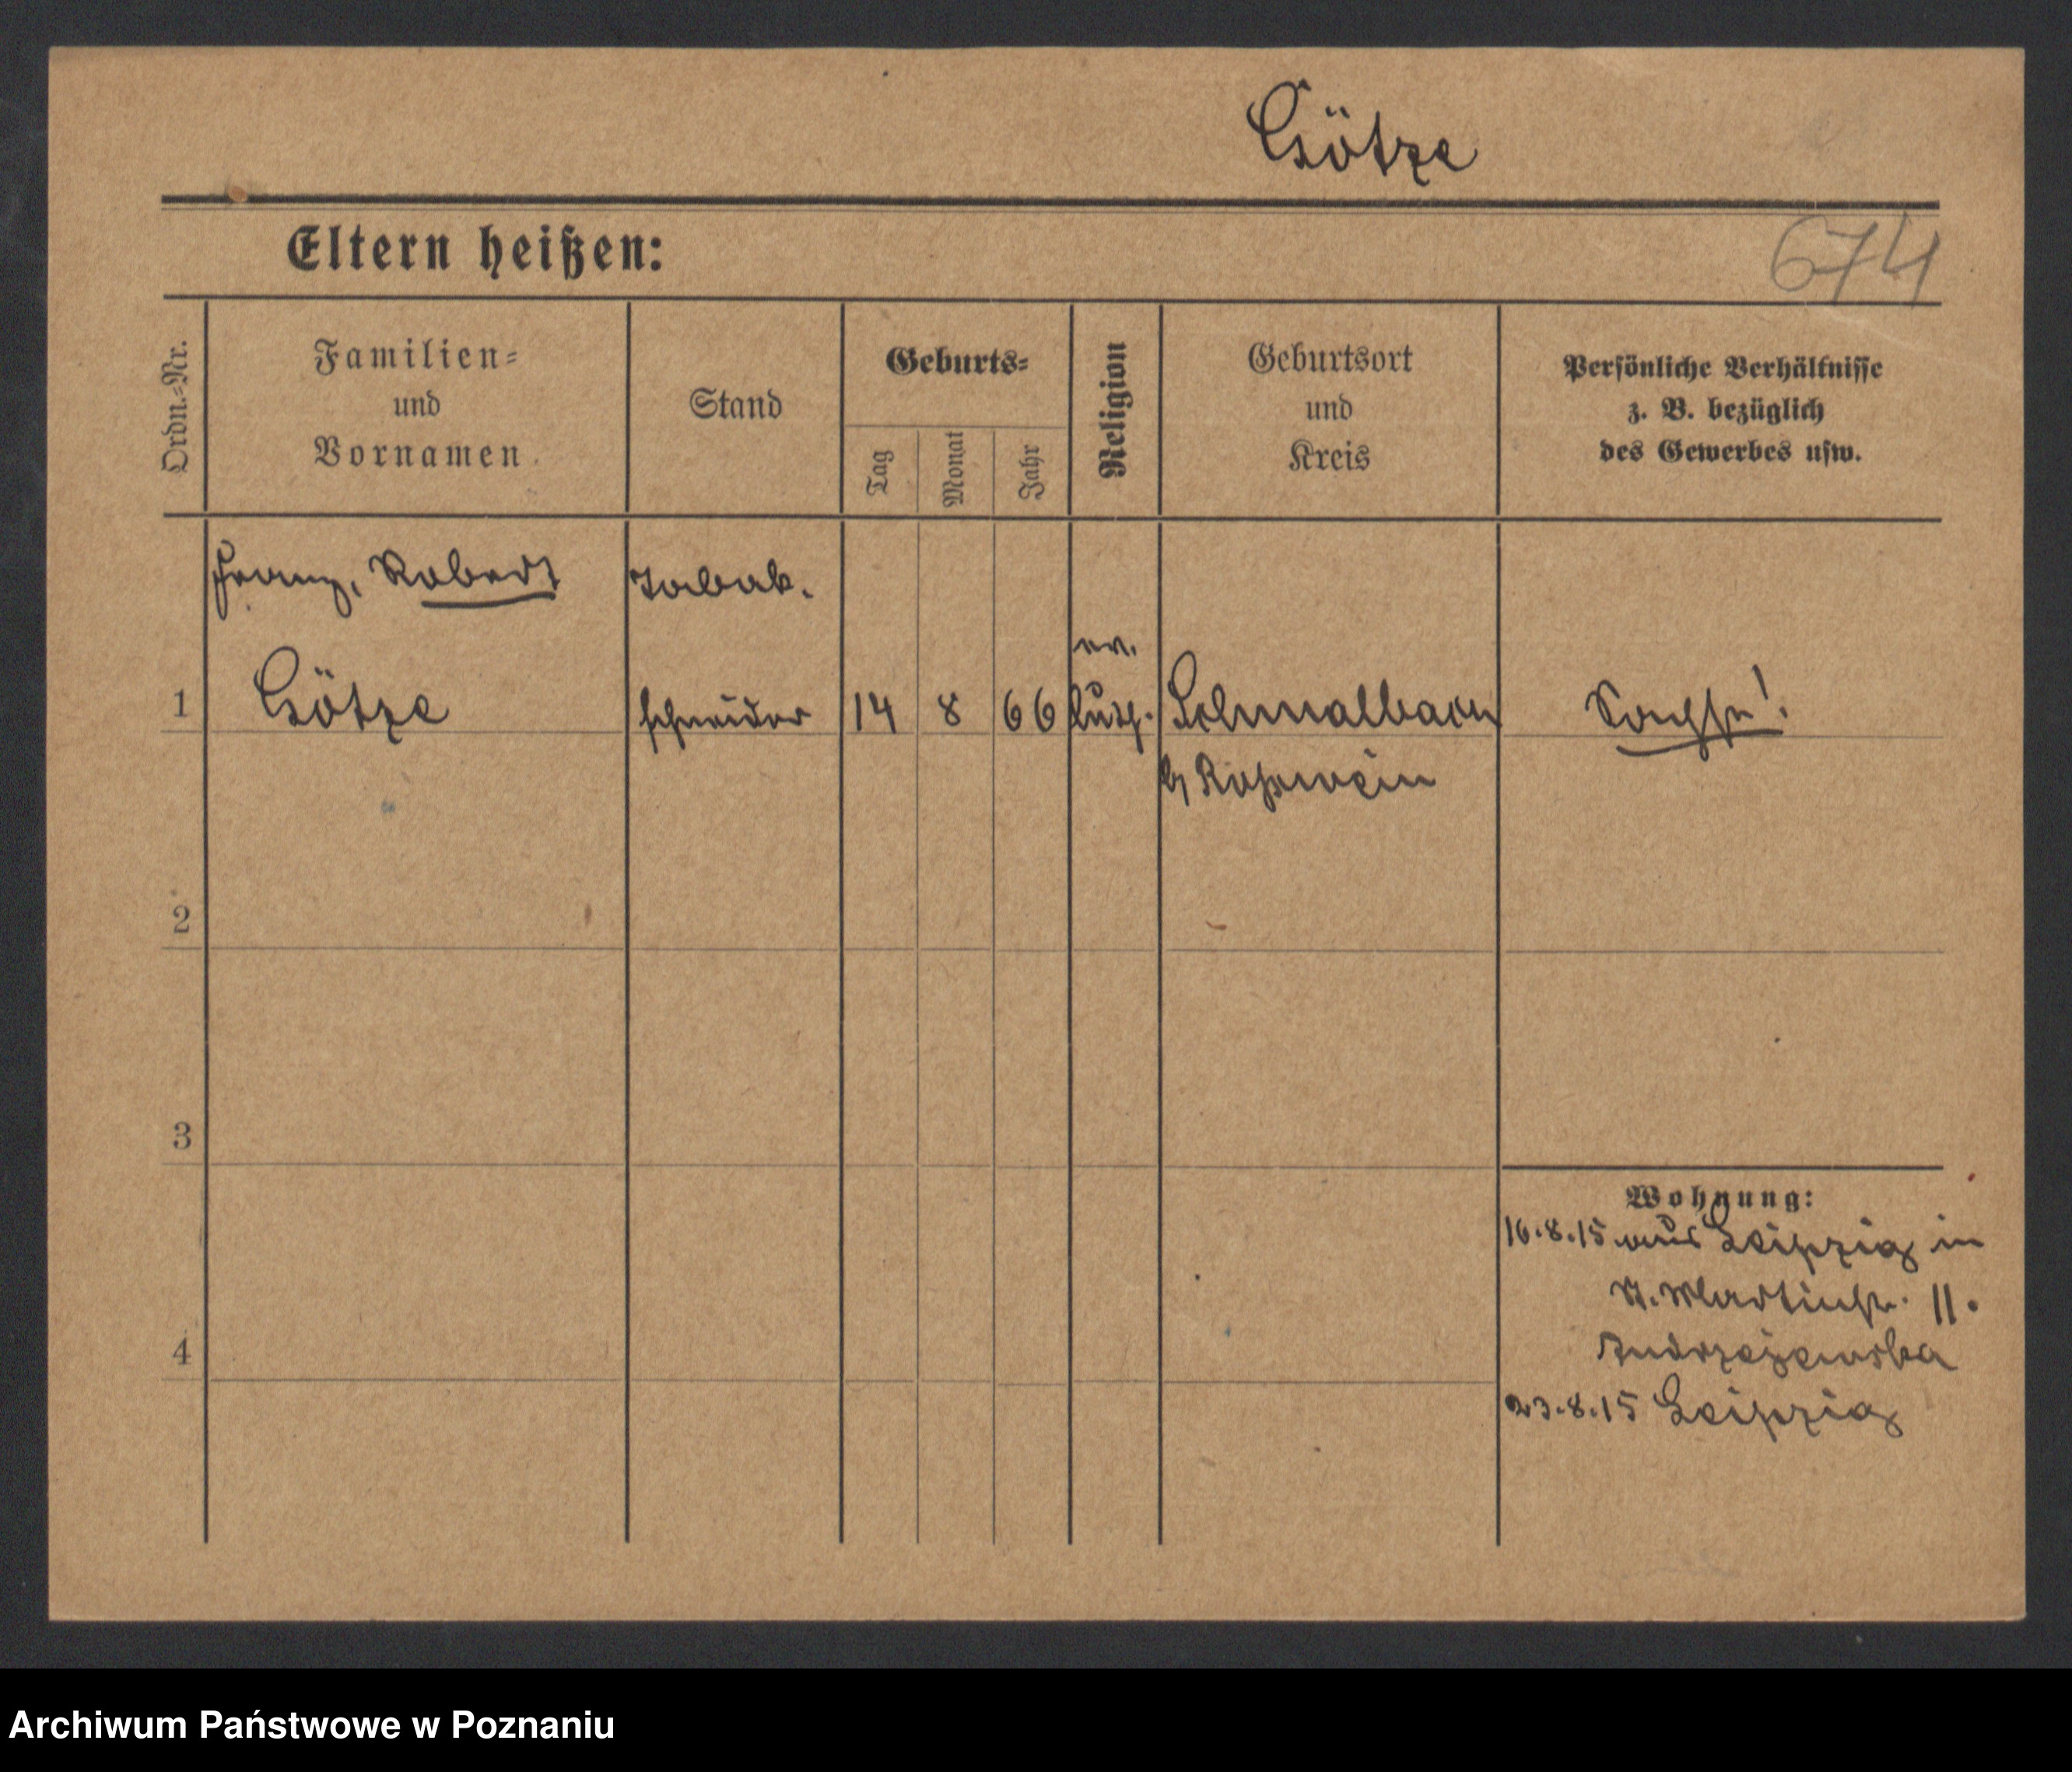 Götze
Eltern heißen:
674
Ordn.-Nr.
Familien-
und
Vornamen
Stand
Geburts-
Tag
Monat
Jahr
Religion
Geburtsort
und
Kreis
Persönliche Verhältnisse
z. B. bezüglich
des Gewerbes usw.
Franz, Robert
Götze
Tabak.
schneider
1
14 8 66
ev.
luth.
Schmalbach
b/ Roßwein
Sachse!
2
3
4
Wohnung:
16.8.15 aus Leipzig in
St. Martinstr. 11.
Andrzejewska
23.8.15 Leipzig
Archiwum Państwowe w Poznaniu